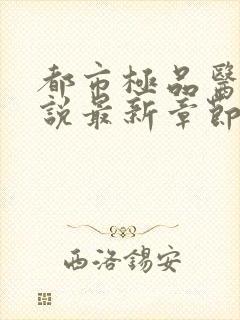 都市極品醫
說最新章節
西洛錫安